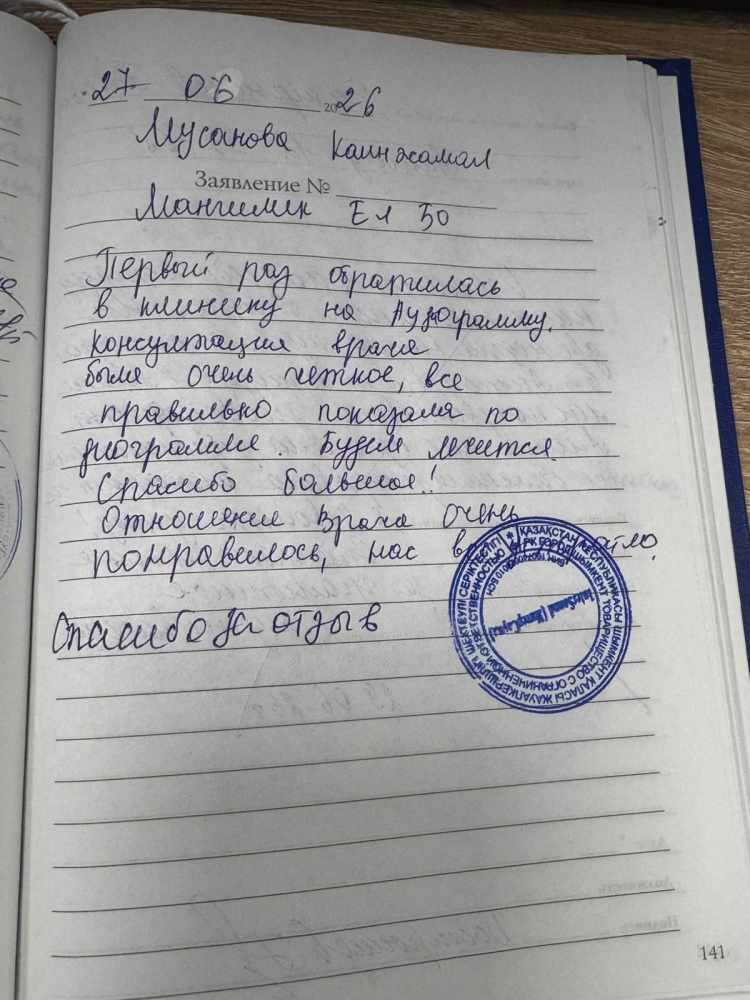 27 06 2026
Мусанова Каинжамал
Заявление №
Мангилик Ел 50
Первый раз обратилась
в клинику на Аудиограмму.
консультация врача
была очень четкое, все
правильно показала по
диограмме. Будем лечится.
Спасибо большое!
Отношение врача очень
понравилось, нас
Спасибо за отзыв
ҚАЗАҚСТАН РЕСПУБЛИКАСЫ ШЫМКЕНТ ҚАЛАСЫ ЖАУАПКЕРШІЛІГІ ШЕКТЕУЛІ СЕРІКТЕСТІГІ
ТОВАРИЩЕСТВО С ОГРАНИЧЕННОЙ ОТВЕТСТВЕННОСТЬЮ
141